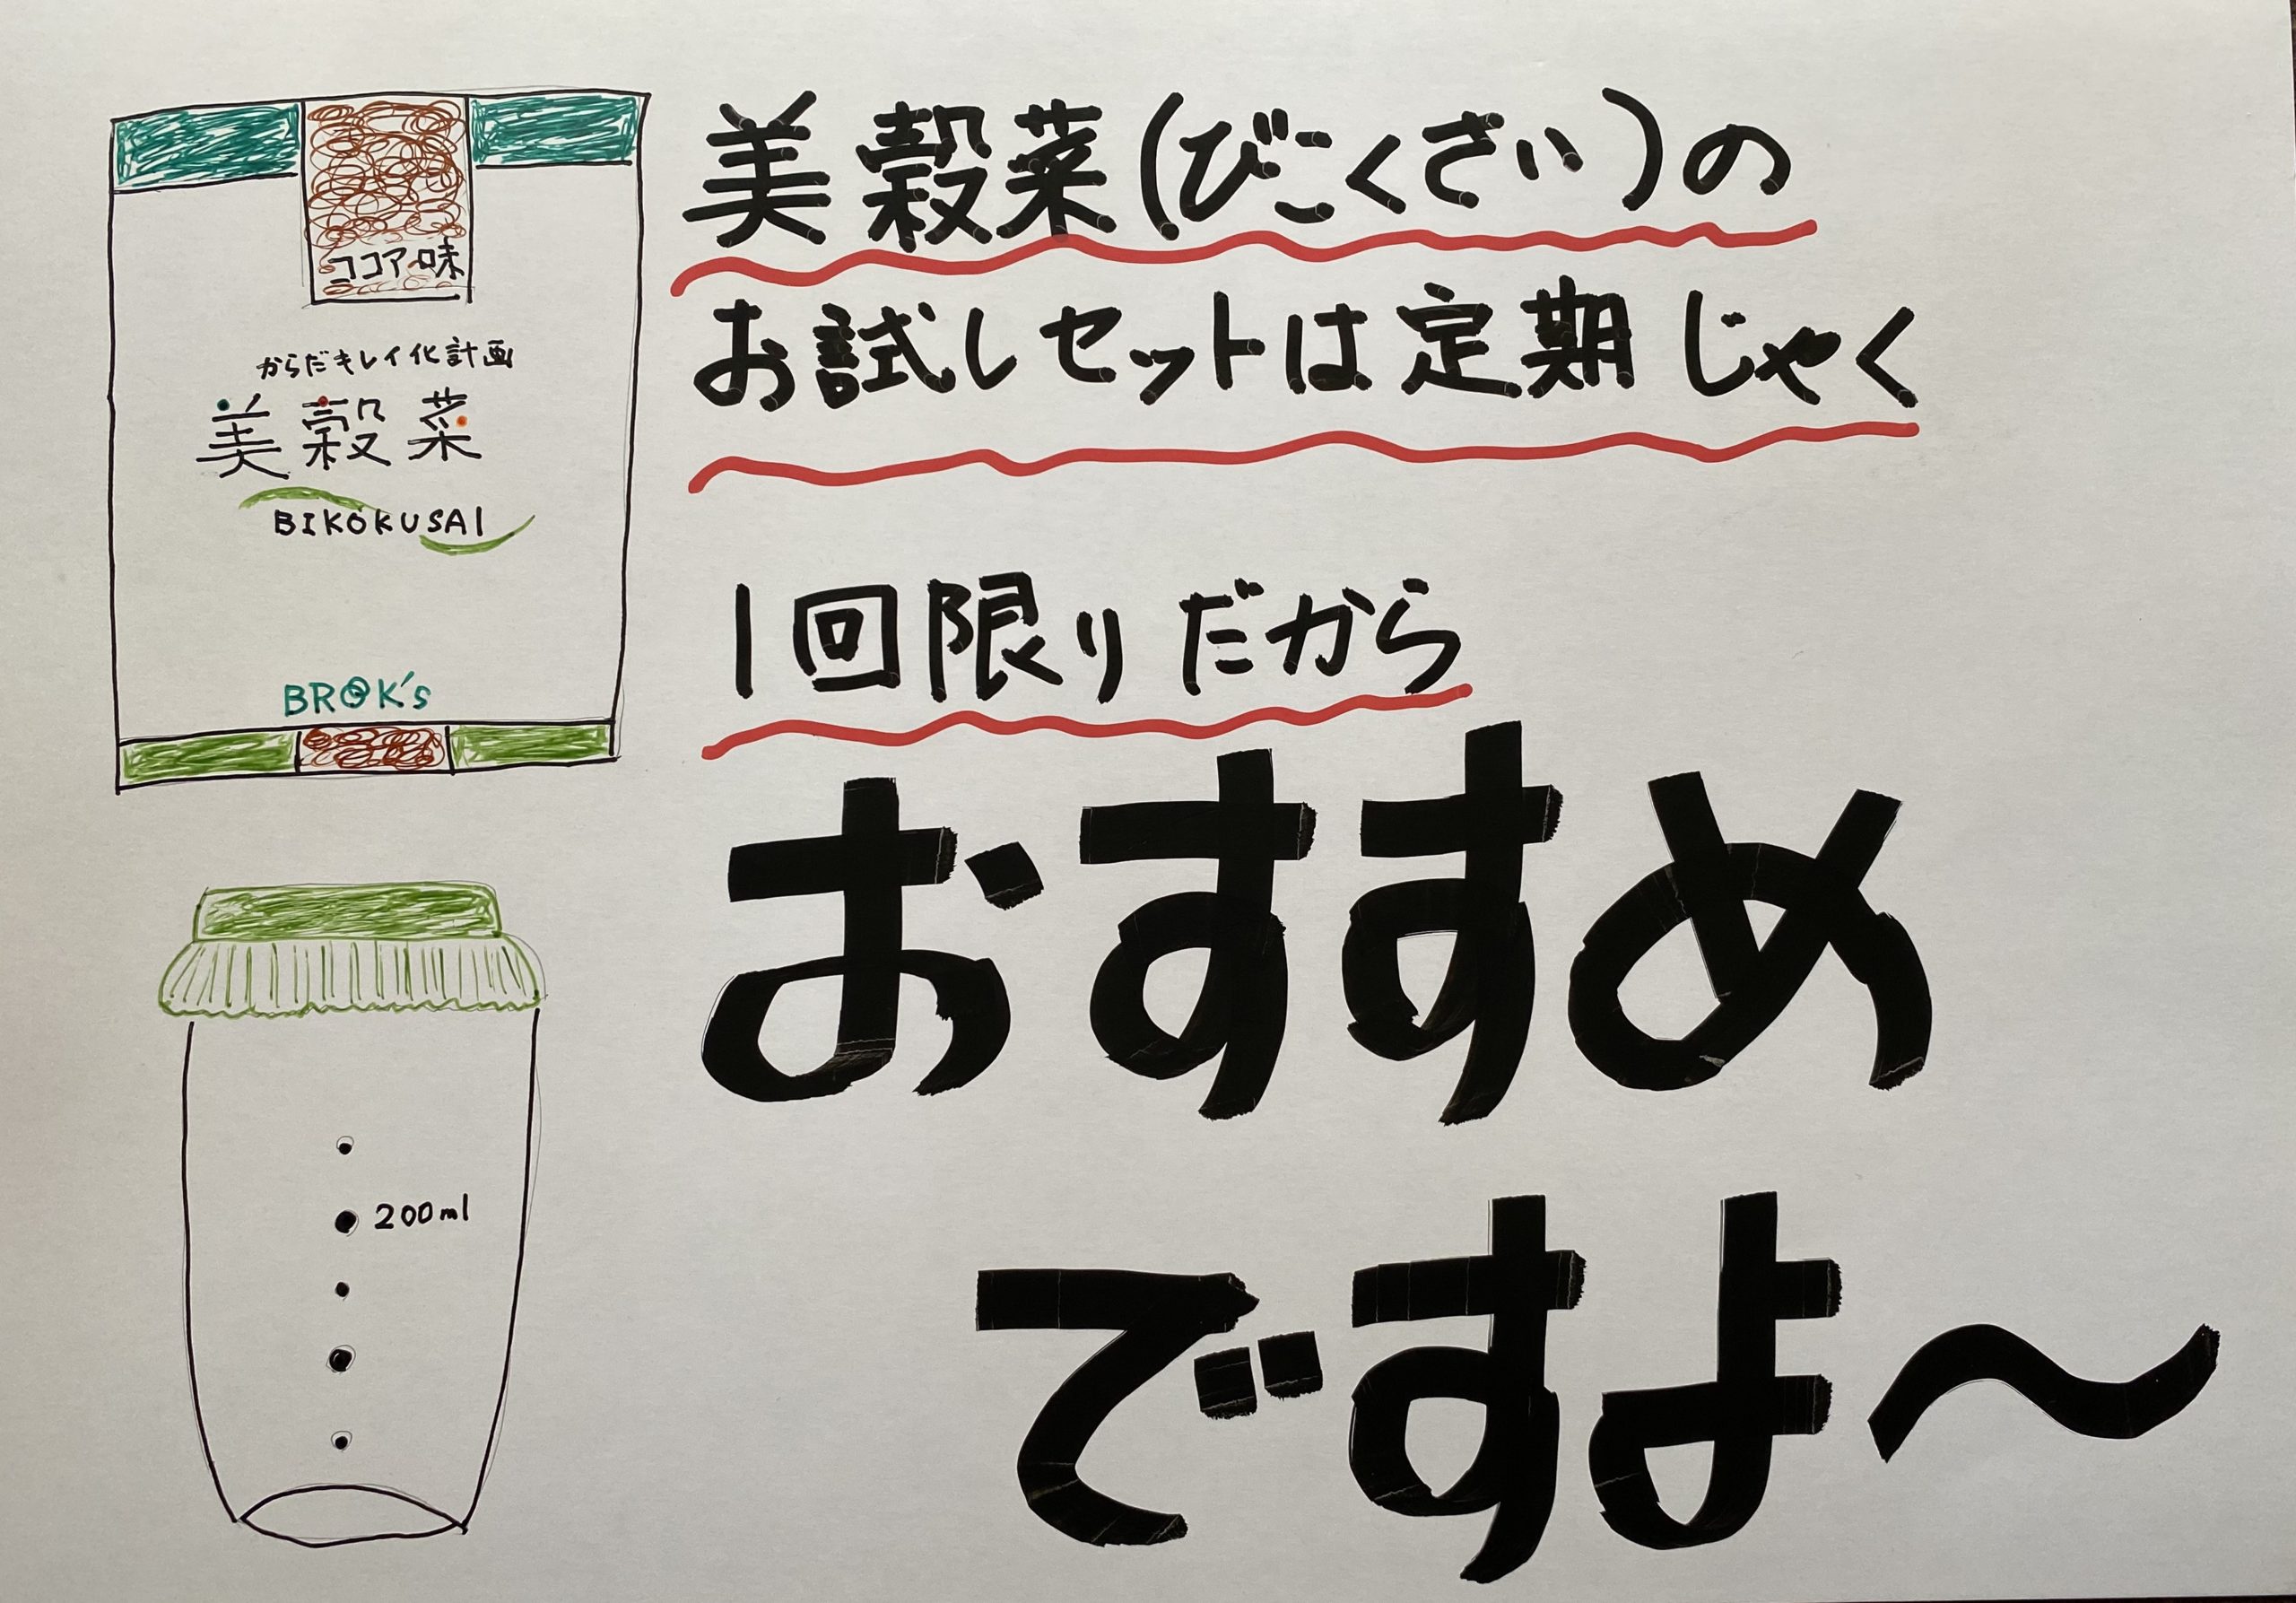 ココア味
からだキレイ化計画
美穀菜
BIKOKUSAI
BROOK's
200ml
美穀菜(びこくさい)の
お試しセットは定期じゃく
1回限りだから
おすすめ
ですよ〜